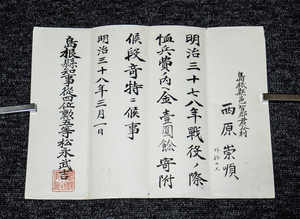 島根縣邑智郡君谷村
西原崇順
外拾七人
明治三十七八年戰役ノ際
恤兵費ノ内ヘ金壹圓餘寄附
候段奇特ニ候事
明治三十八年三月一日
島根縣知事從四位勲五等松永武吉